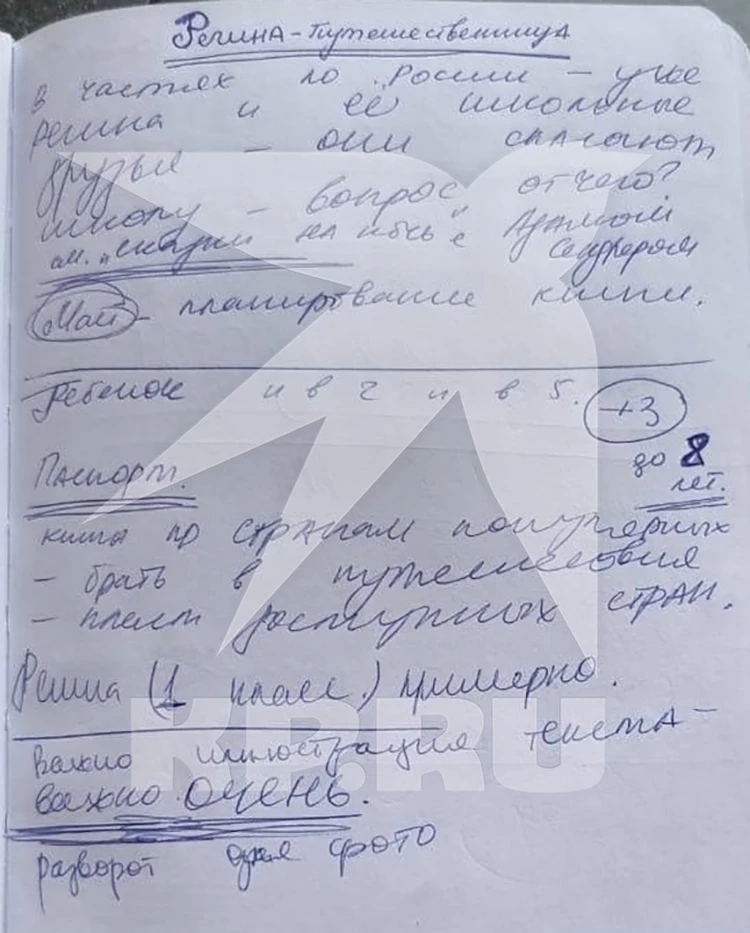 Регина-путешественница
в частях по России - уже
Регина и её школьные
друзья - они спасают
школу - вопрос, от чего?
см. "сказки на ночь" с Адамом
Сендлером
Май - планирование книги.
Ребенок и в 2 и в 5. +3
до 8
лет.
Паспорт.
книга по странам популярных
- брать в путешествия
- плеем доступных стран.
Регина (1 класс.) примерно.
важно иллюстрация текста -
важно ОЧЕНЬ.
разворот одна фото
KP.RU